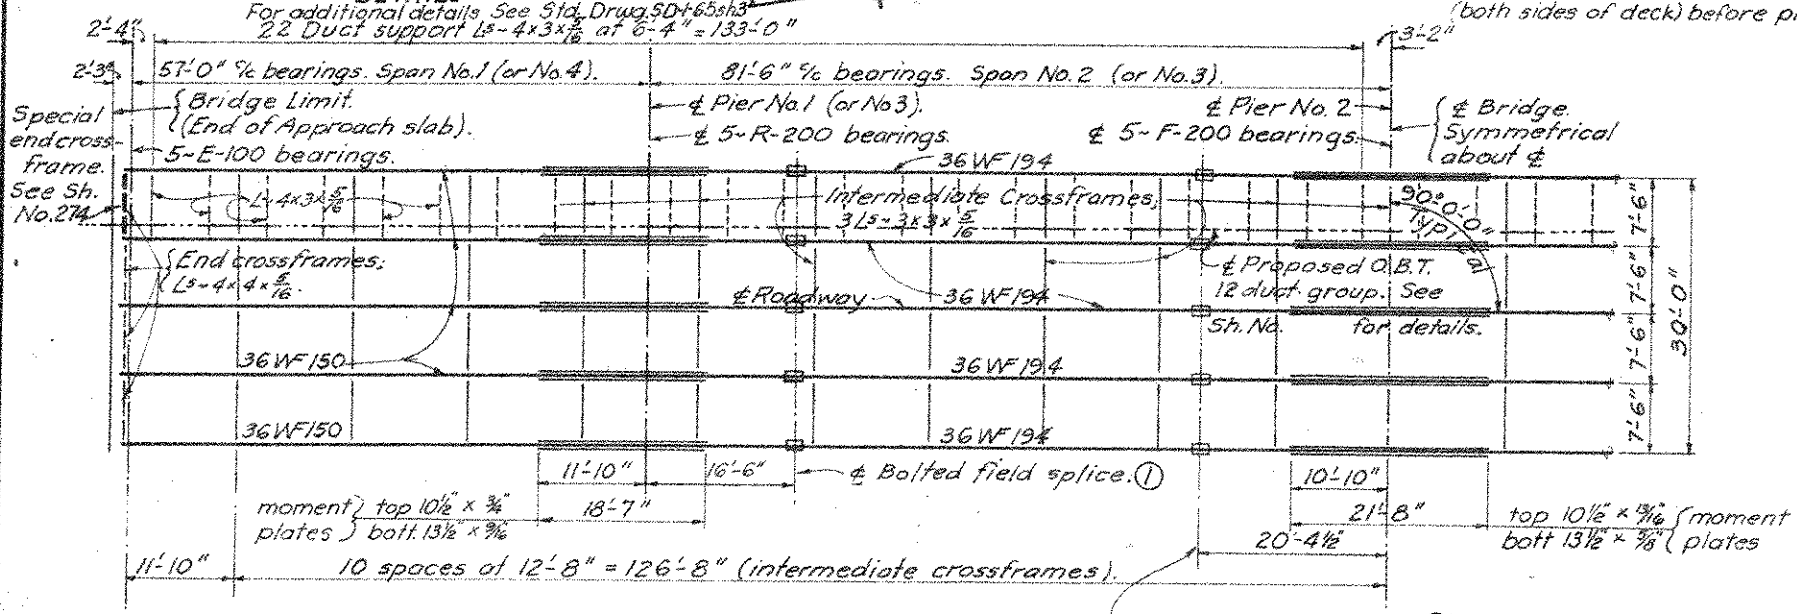 For additional details See Std. Drwg. SD-1-65 sh3
(both sides of deck) before
22 Duct support Ls-4x3x5/16 at 6'-4" = 133'-0"
2'-4"
3'-2"
2'-3"
57'-0" c/c bearings. Span No.1 (or No.4).
81'-6" c/c bearings. Span No.2 (or No.3).
Special
endcross-
frame.
See Sh.
No.274
Bridge Limit.
(End of Approach slab).
5~E-100 bearings.
℄ Pier No.1 (or No3).
℄ 5~R-200 bearings.
℄ Pier No.2
℄ 5~F-200 bearings.
℄ Bridge.
Symmetrical
about ℄
36 WF 194
L-4x3x5/16
Intermediate Crossframes,
3Ls-3x3x5/16
90°-0'-0"
Typical
End crossframes;
Ls-4x4x5/16.
℄ Proposed O.B.T.
12 duct group. See
Sh. No. for details.
℄ Roadway
36 WF 194
7'-6"
7'-6"
7'-6"
7'-6"
30'-0"
36 WF 150
36 WF 194
36 WF 150
36 WF 194
11'-10"
16'-6"
℄ Bolted field splice. ①
10'-10"
18'-7"
21'-8"
moment
plates
top 10½" x ¾"
bott. 13½" x 9/16"
top 10½" x 13/16"
bott 13½" x 5/8"
moment
plates
20'-4½"
11'-10"
10 spaces at 12'-8" = 126'-8" (intermediate crossframes).